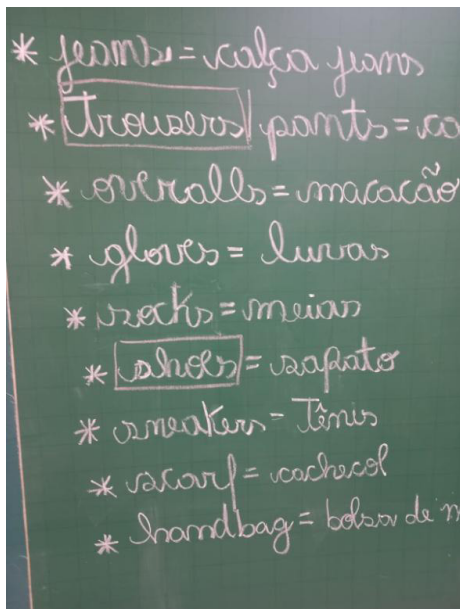 * jeans = calça jeans
* trousers / pants = ca
* overalls = macacão
* gloves = luvas
* socks = meias
* shoes = sapato
* sneakers = Tênis
* scarf = cachecol
* handbag = bolsa de m